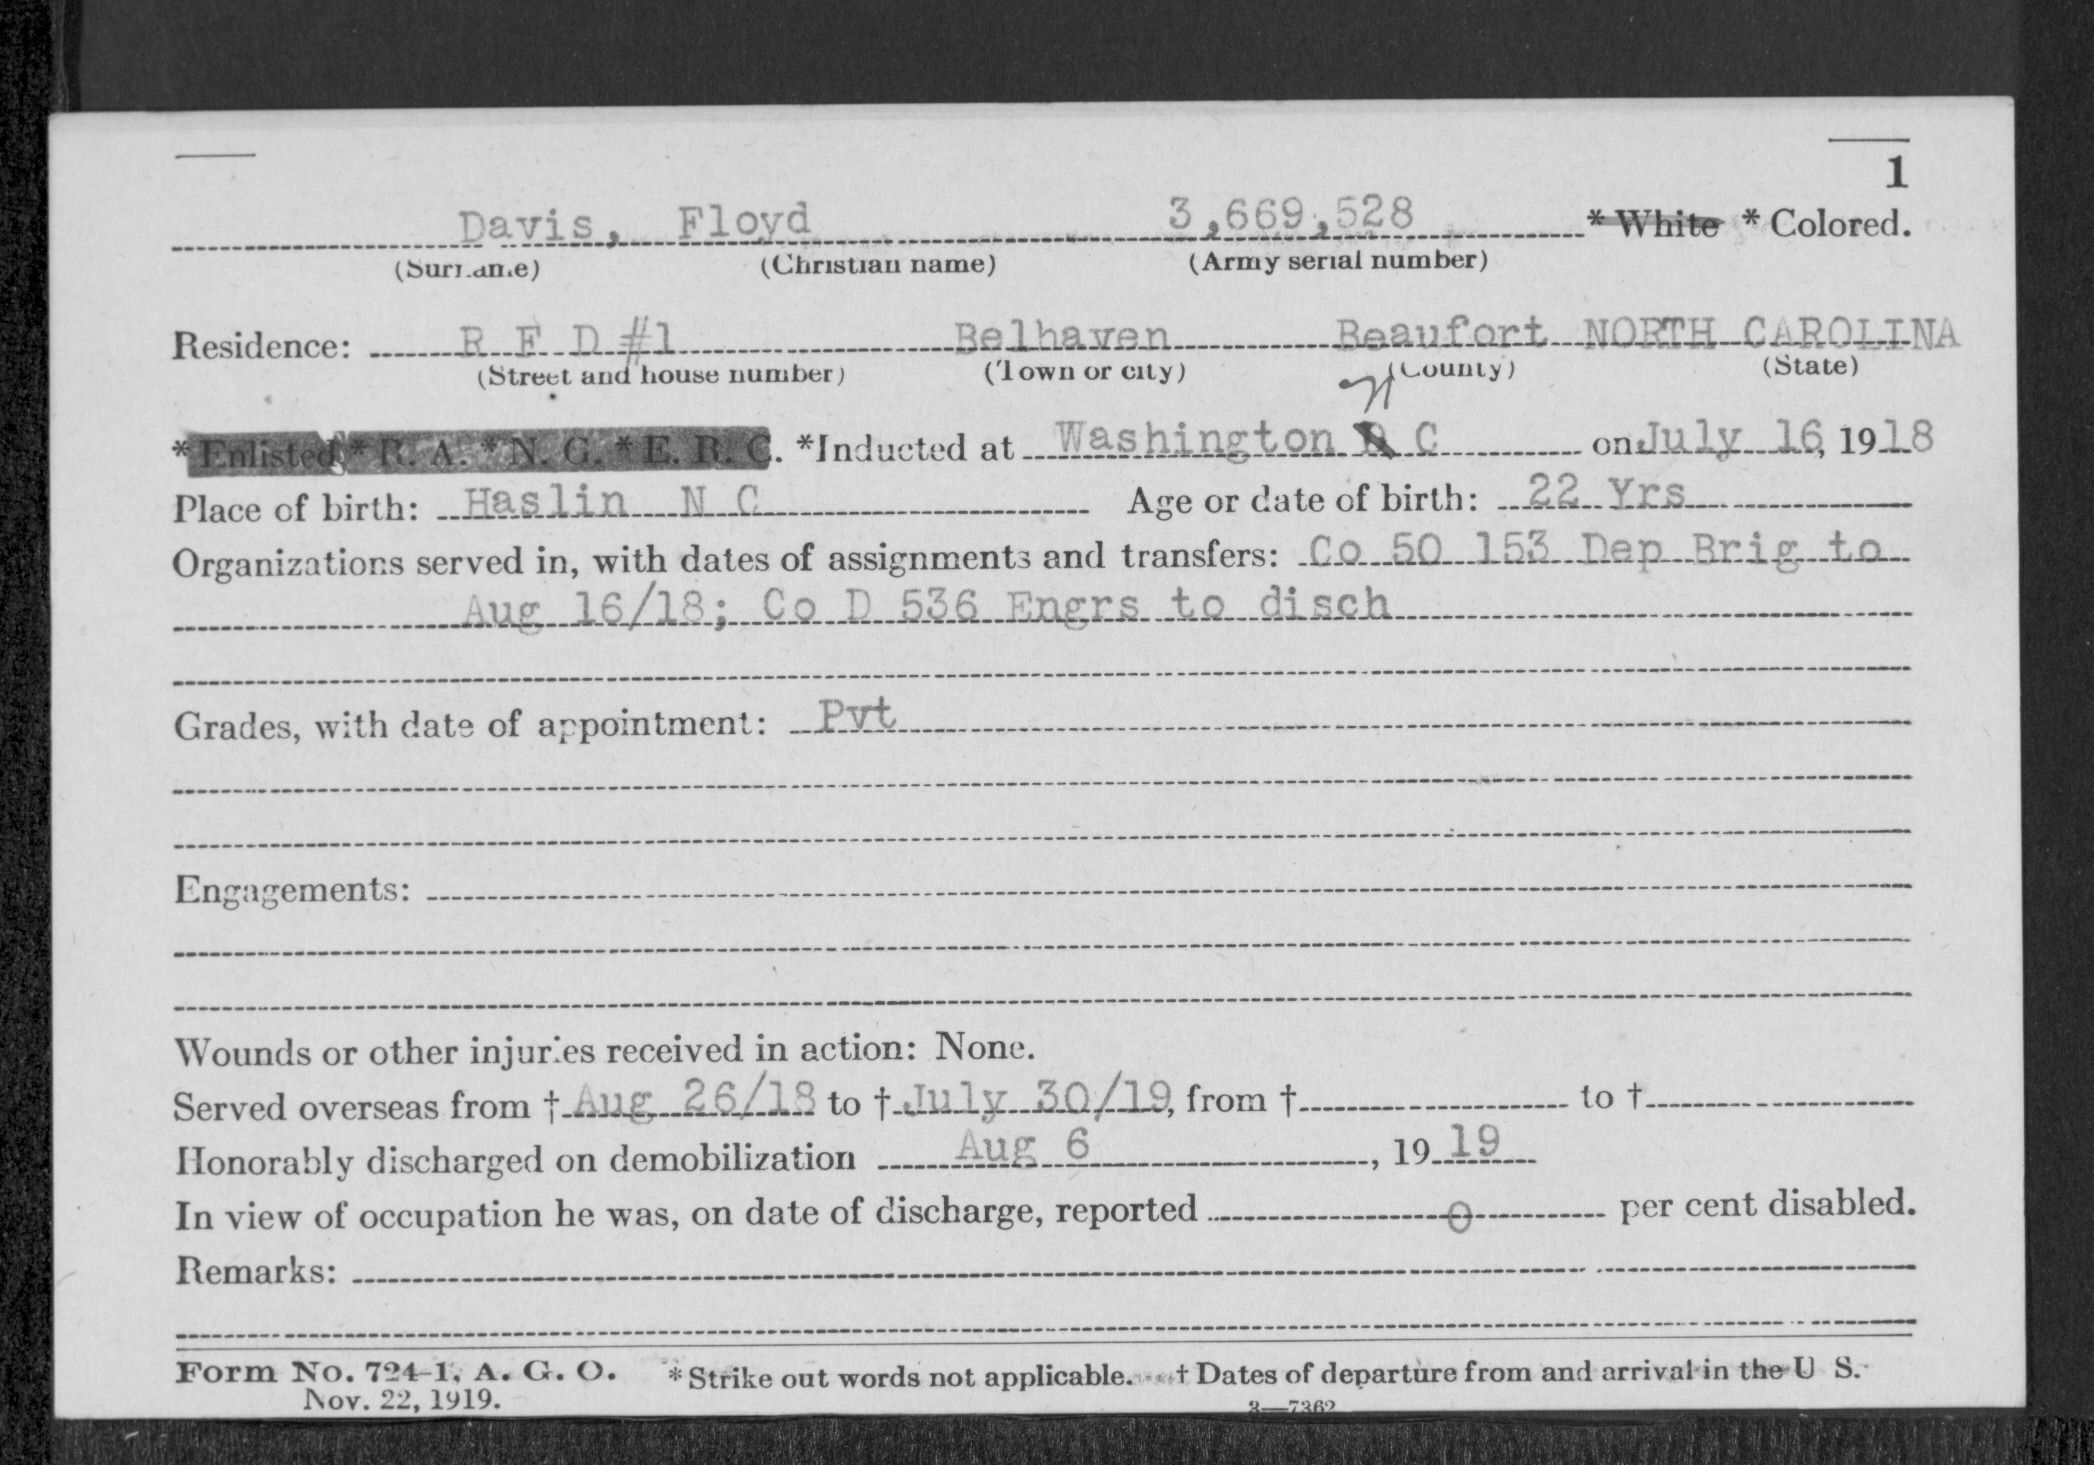 1
Davis, Floyd 3,669,528 * White * Colored.
(Surname) (Christian name) (Army serial number)
Residence: R F D #1 Belhaven Beaufort NORTH CAROLINA
(Street and house number) (Town or city) (County) (State)
N
* Enlisted * R. A. * N. G. * E. R. C. *Inducted at Washington D C on July 16, 1918
Place of birth: Haslin N C Age or date of birth: 22 Yrs
Organizations served in, with dates of assignments and transfers: Co 50 153 Dep Brig to
Aug 16/18; Co D 536 Engrs to disch
Grades, with date of appointment: Pvt
Engagements:
Wounds or other injuries received in action: None.
Served overseas from † Aug 26/18 to † July 30/19, from † to †
Honorably discharged on demobilization Aug 6, 1919
In view of occupation he was, on date of discharge, reported 0 per cent disabled.
Remarks:
Form No. 724-1, A. G. O. * Strike out words not applicable. † Dates of departure from and arrival in the U S.
Nov. 22, 1919. 3—7362